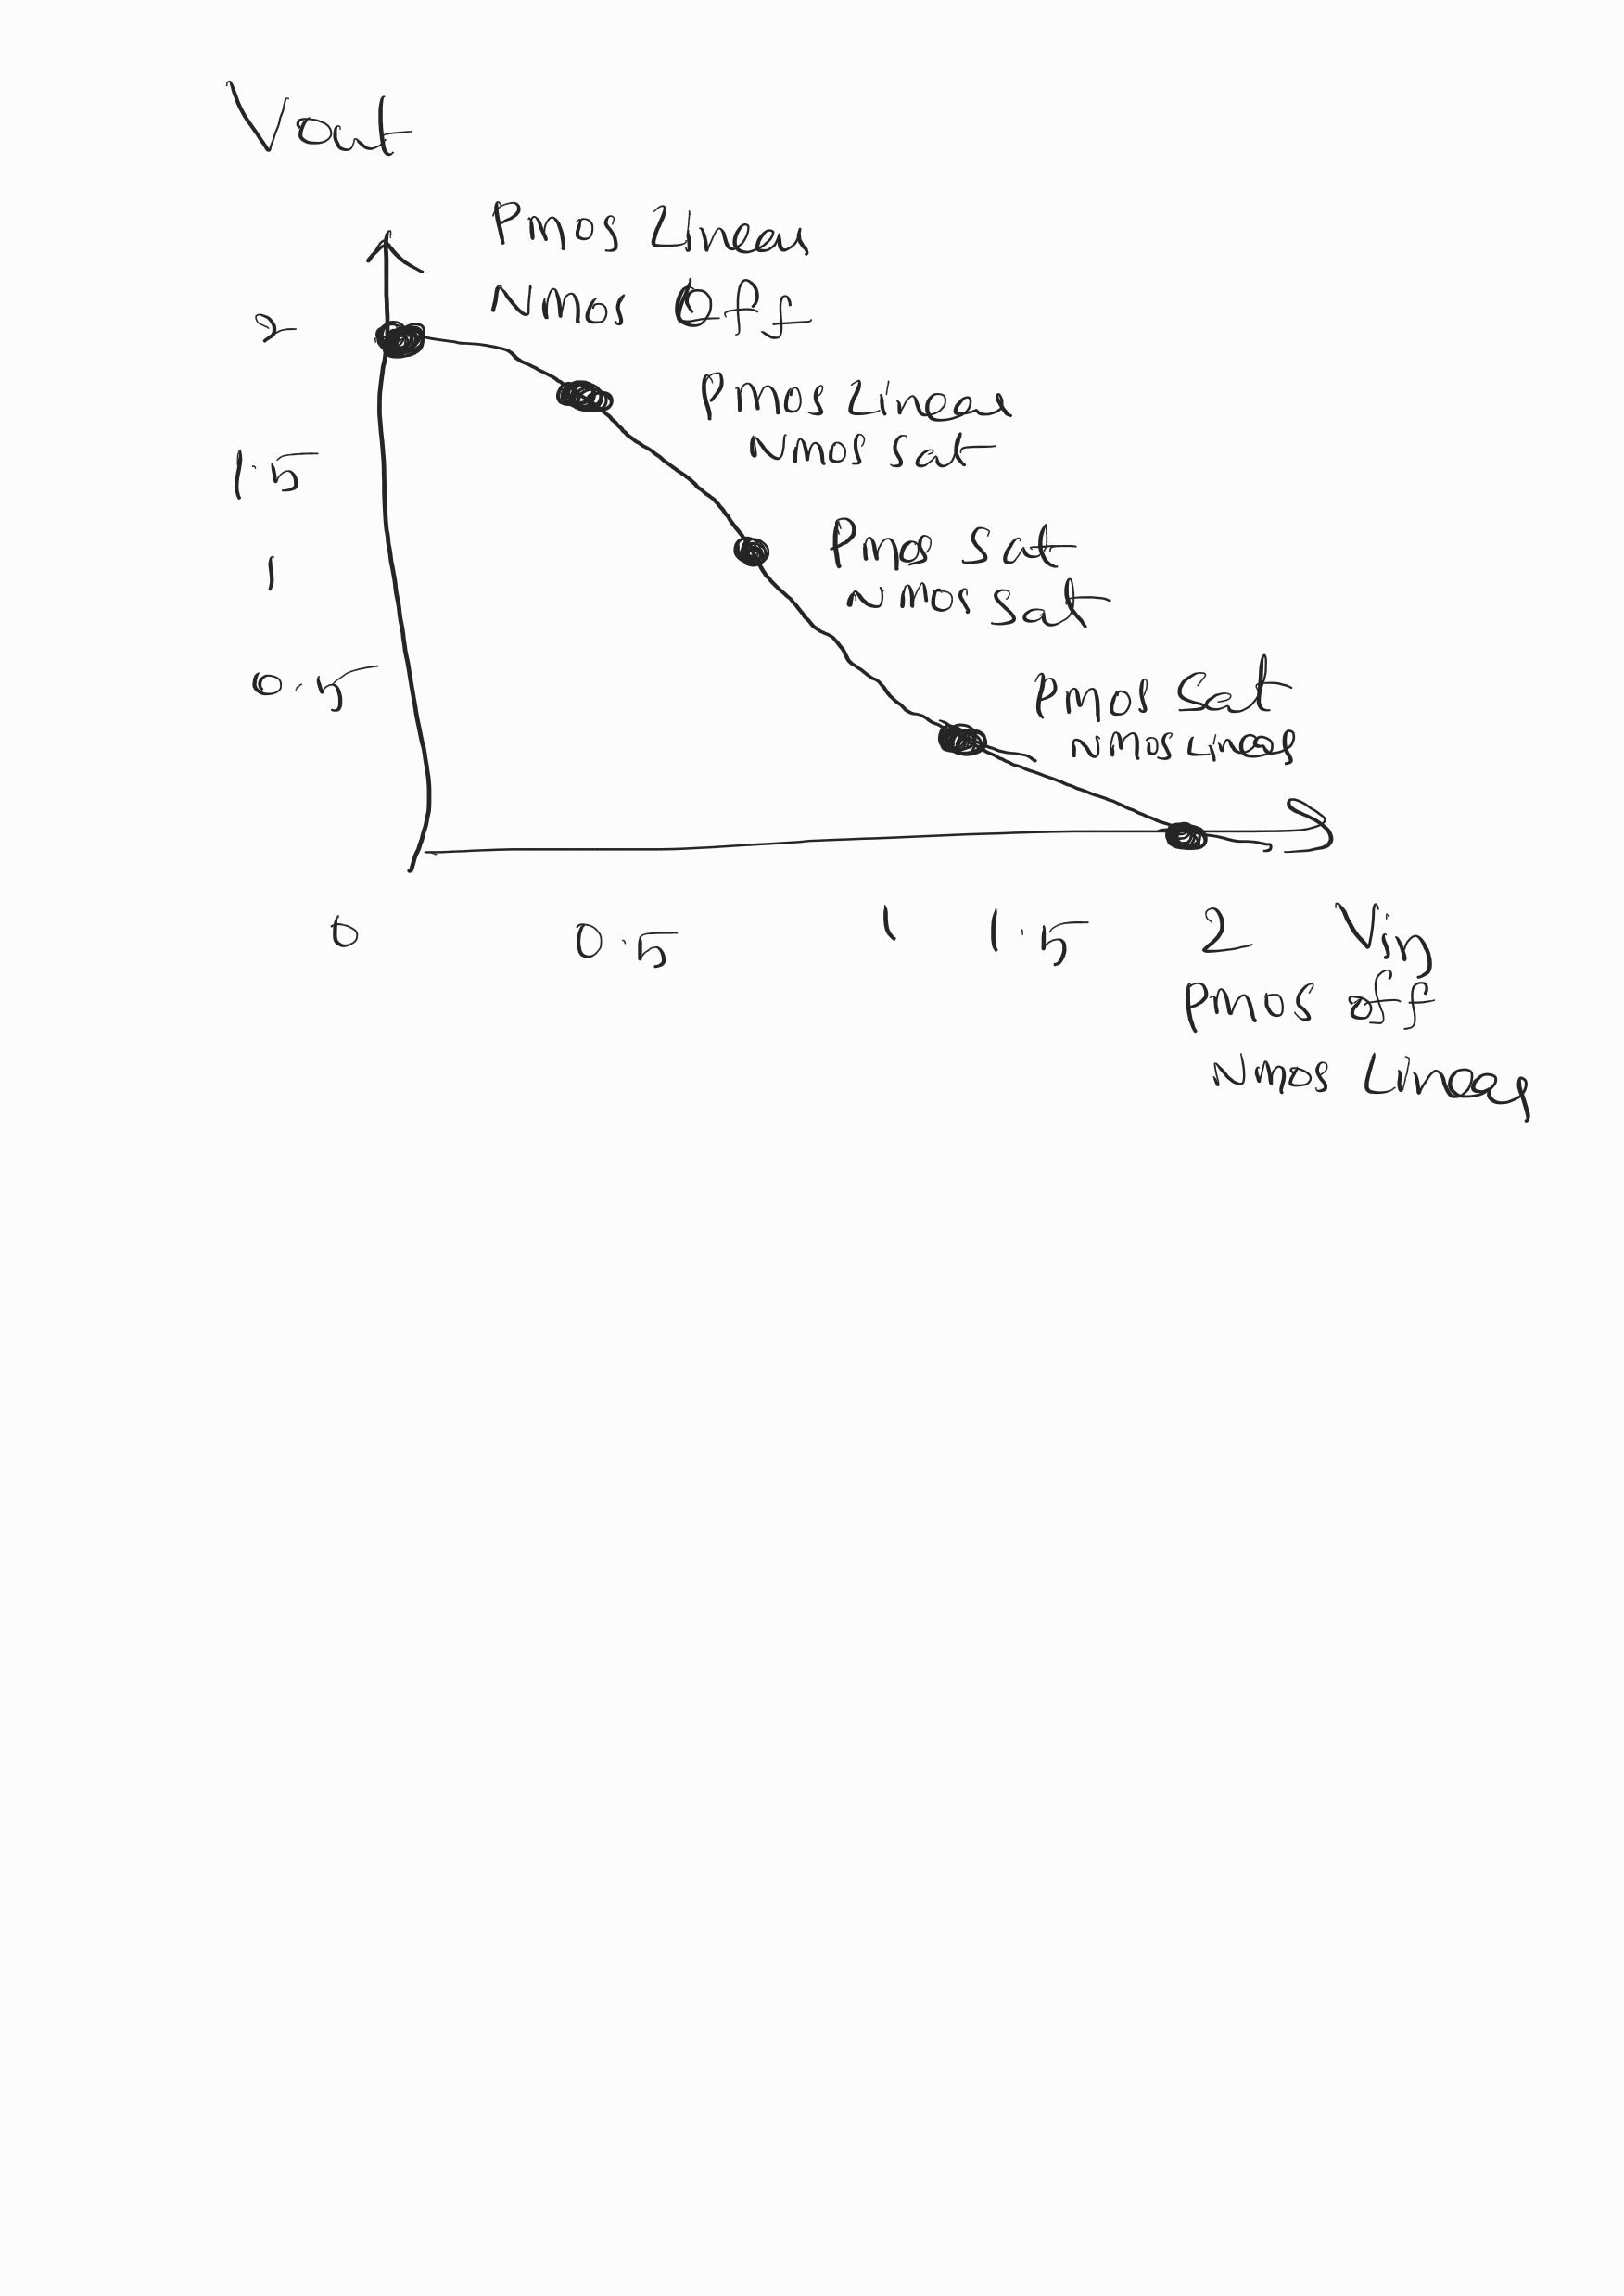 Vout
Pmos Linear
Nmos Off
2
Pmos Linear
Nmos Sat
1.5
Pmos Sat
Nmos Sat
1
0.5
Pmos Sat
Nmos Linear
0 0.5 1 1.5 2 Vin
Pmos off
Nmos Linear